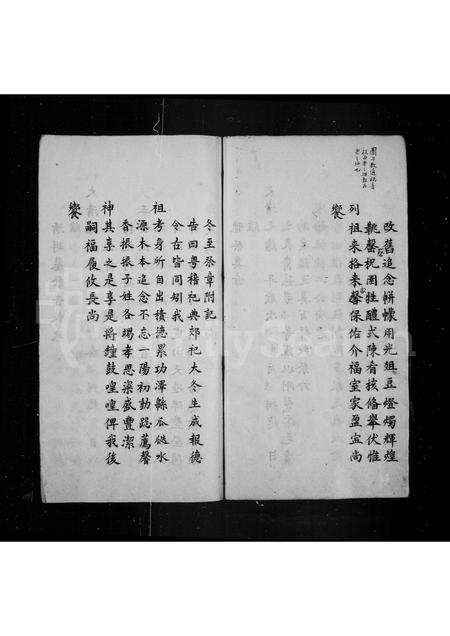 改舊追念軿幪用光俎豆燈燭輝煌
祝囿牲醴式陳肴核俻舉伏惟
列祖来格来馨保佑介福室家盈宜尚
饗
冬至祭章附記
告曰粤稽祀典郊祀大冬生成報德
今古皆同矧我
祖考身所自出積德累功澤縣瓜瓞水
源木本追念不忘一陽初動跽薦馨
香振振子姓各竭孝思粢盛豐潔
神其享之是享是將鐘鼓喤喤俾我後
嗣福履攸長尚
饗
FamilySearch